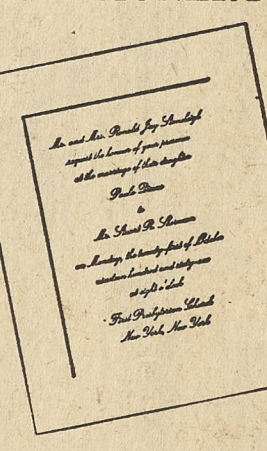 Mr. and Mrs. Ronald Jay
request the honour of your presence
at the marriage of their daughter
Paula Diane
to
Mr. Stuart R.
on Monday, the twenty-first of October
nineteen hundred and sixty-
at eight o'clock
First Presbyterian
New York, New York